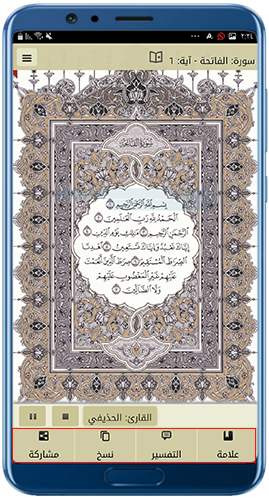 ٢:٢٤
سورة: الفاتحة - آية: 1
سورة الفاتحة
بِسْمِ ٱللَّهِ ٱلرَّحْمَٰنِ ٱلرَّحِيمِ ١
ٱلْحَمْدُ لِلَّهِ رَبِّ ٱلْعَٰلَمِينَ ٢
ٱلرَّحْمَٰنِ ٱلرَّحِيمِ ٣ مَٰلِكِ يَوْمِ ٱلدِّينِ ٤
إِيَّاكَ نَعْبُدُ وَإِيَّاكَ نَسْتَعِينُ ٥ ٱهْدِنَا
ٱلصِّرَٰطَ ٱلْمُسْتَقِيمَ ٦ صِرَٰطَ ٱلَّذِينَ أَنْعَمْتَ
عَلَيْهِمْ غَيْرِ ٱلْمَغْضُوبِ عَلَيْهِمْ
وَلَا ٱلضَّآلِّينَ ٧
القارئ: الحذيفي
علامة التفسير نسخ مشاركة